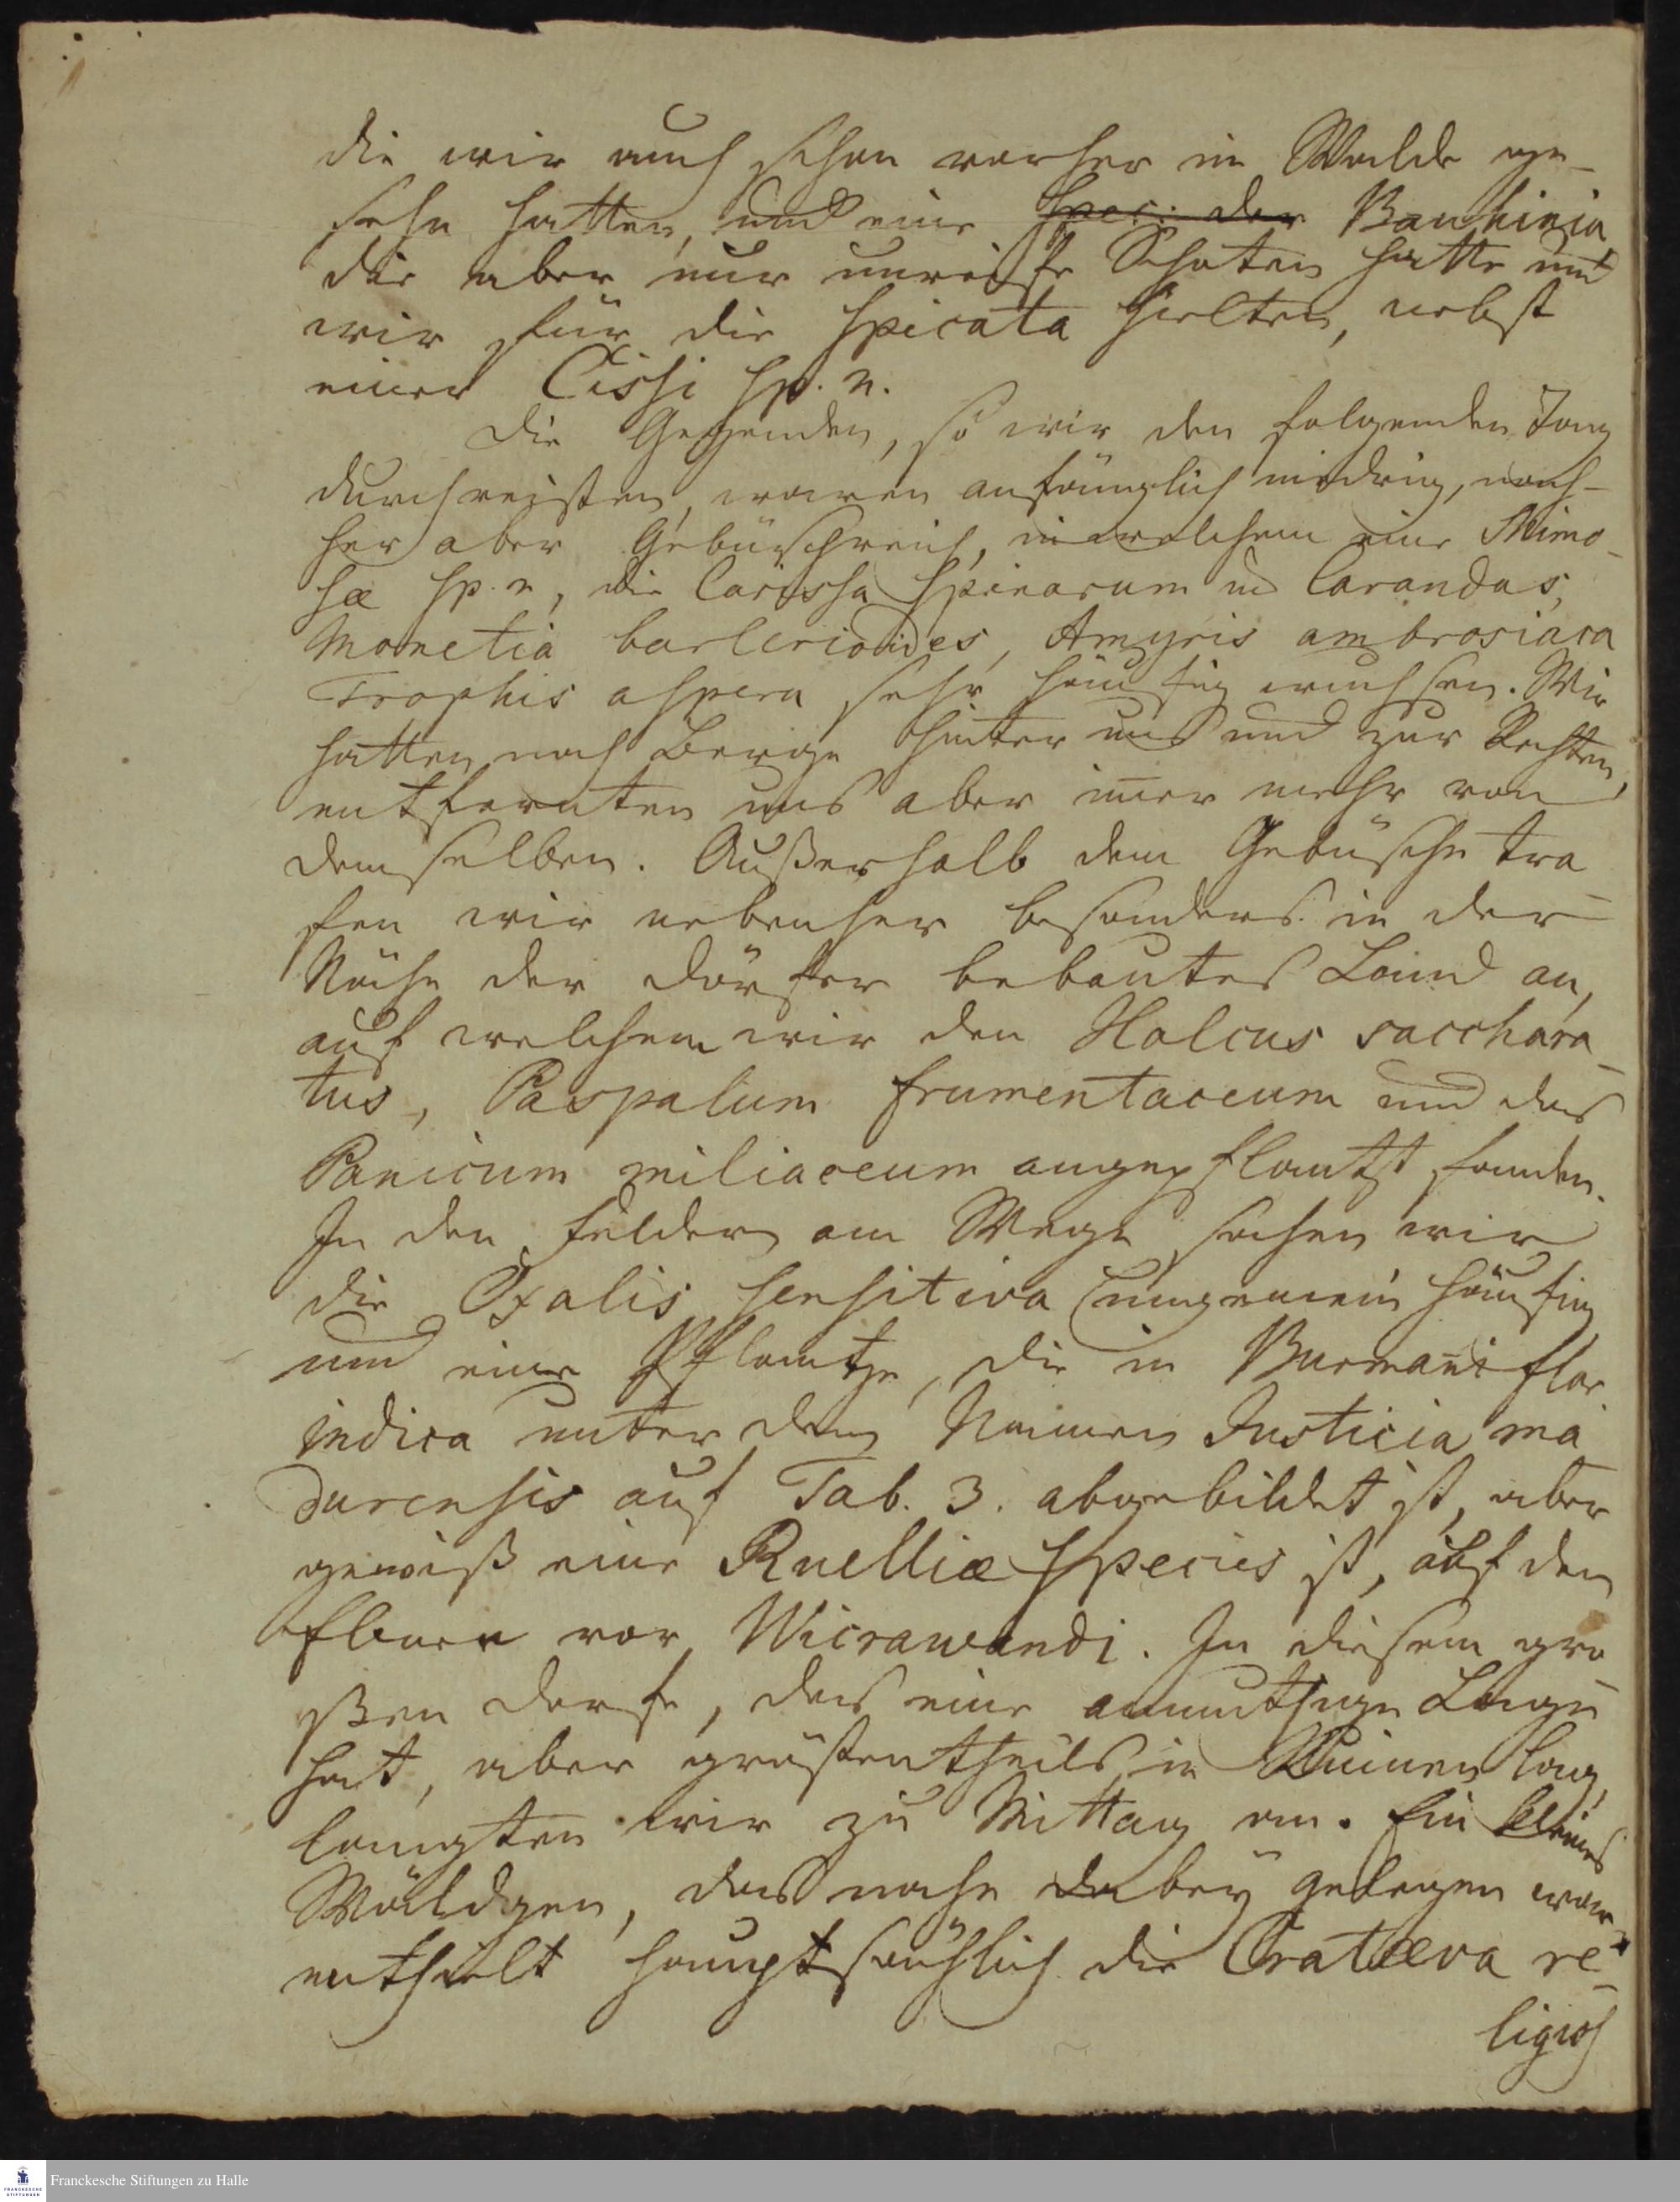 die wir auch schon vorher im Walde ge-
sehn hatten, und eine Spec: der Bauhinia
die aber nur unreife Schoten hatte und
wir für die spicata hielten, nebst
einer Cissi sp. n.
Die Gegenden, so wir den folgenden Tag
durchreisten, waren anfänglich niedrig, nach-
her aber Gebüschreich, in welchem eine Mimo-
sæ sp. n, die Carissa spinarum und Carandas,
Monetia barlerioides, Amyris ambrosiaca
Trophis aspera sehr häufig wuchsen. Wir
hatten noch Berge hinter uns und zur Rechten,
entfernten uns aber im̅er mehr von
demselben. Außerhalb dem Gebüsche tra-
fen wir nebenher besonders in der
Nähe der Dörfer bebautes Land an,
auf welchem wir den Holcus sacchara-
tus, Paspalum frumentaceum und das
Panicum miliaceum angepflantzt fanden.
In den Feldern am Wege sahen wir
die Oxalis sensitiva ungemein häufig
und eine Pflantze, die in Burman̅i flor
indica unter dem Namen Justicia ma
durensis auf Tab. 3. abgebildet ist, aber
gewiß eine Ruelliæ species ist, auf den
Fluren vor Wicrawandi. In diesem gro-
ßen Dorfe, das eine anmuthige Lage
hat, aber gröstentheils in Ruinen lag,
langten wir zu Mittag an. Ein kleines
Wäldgen, das nahe dabey gelegen war
enthielt hauptsächlich die Cratæva re-
ligios
Franckesche Stiftungen zu Halle